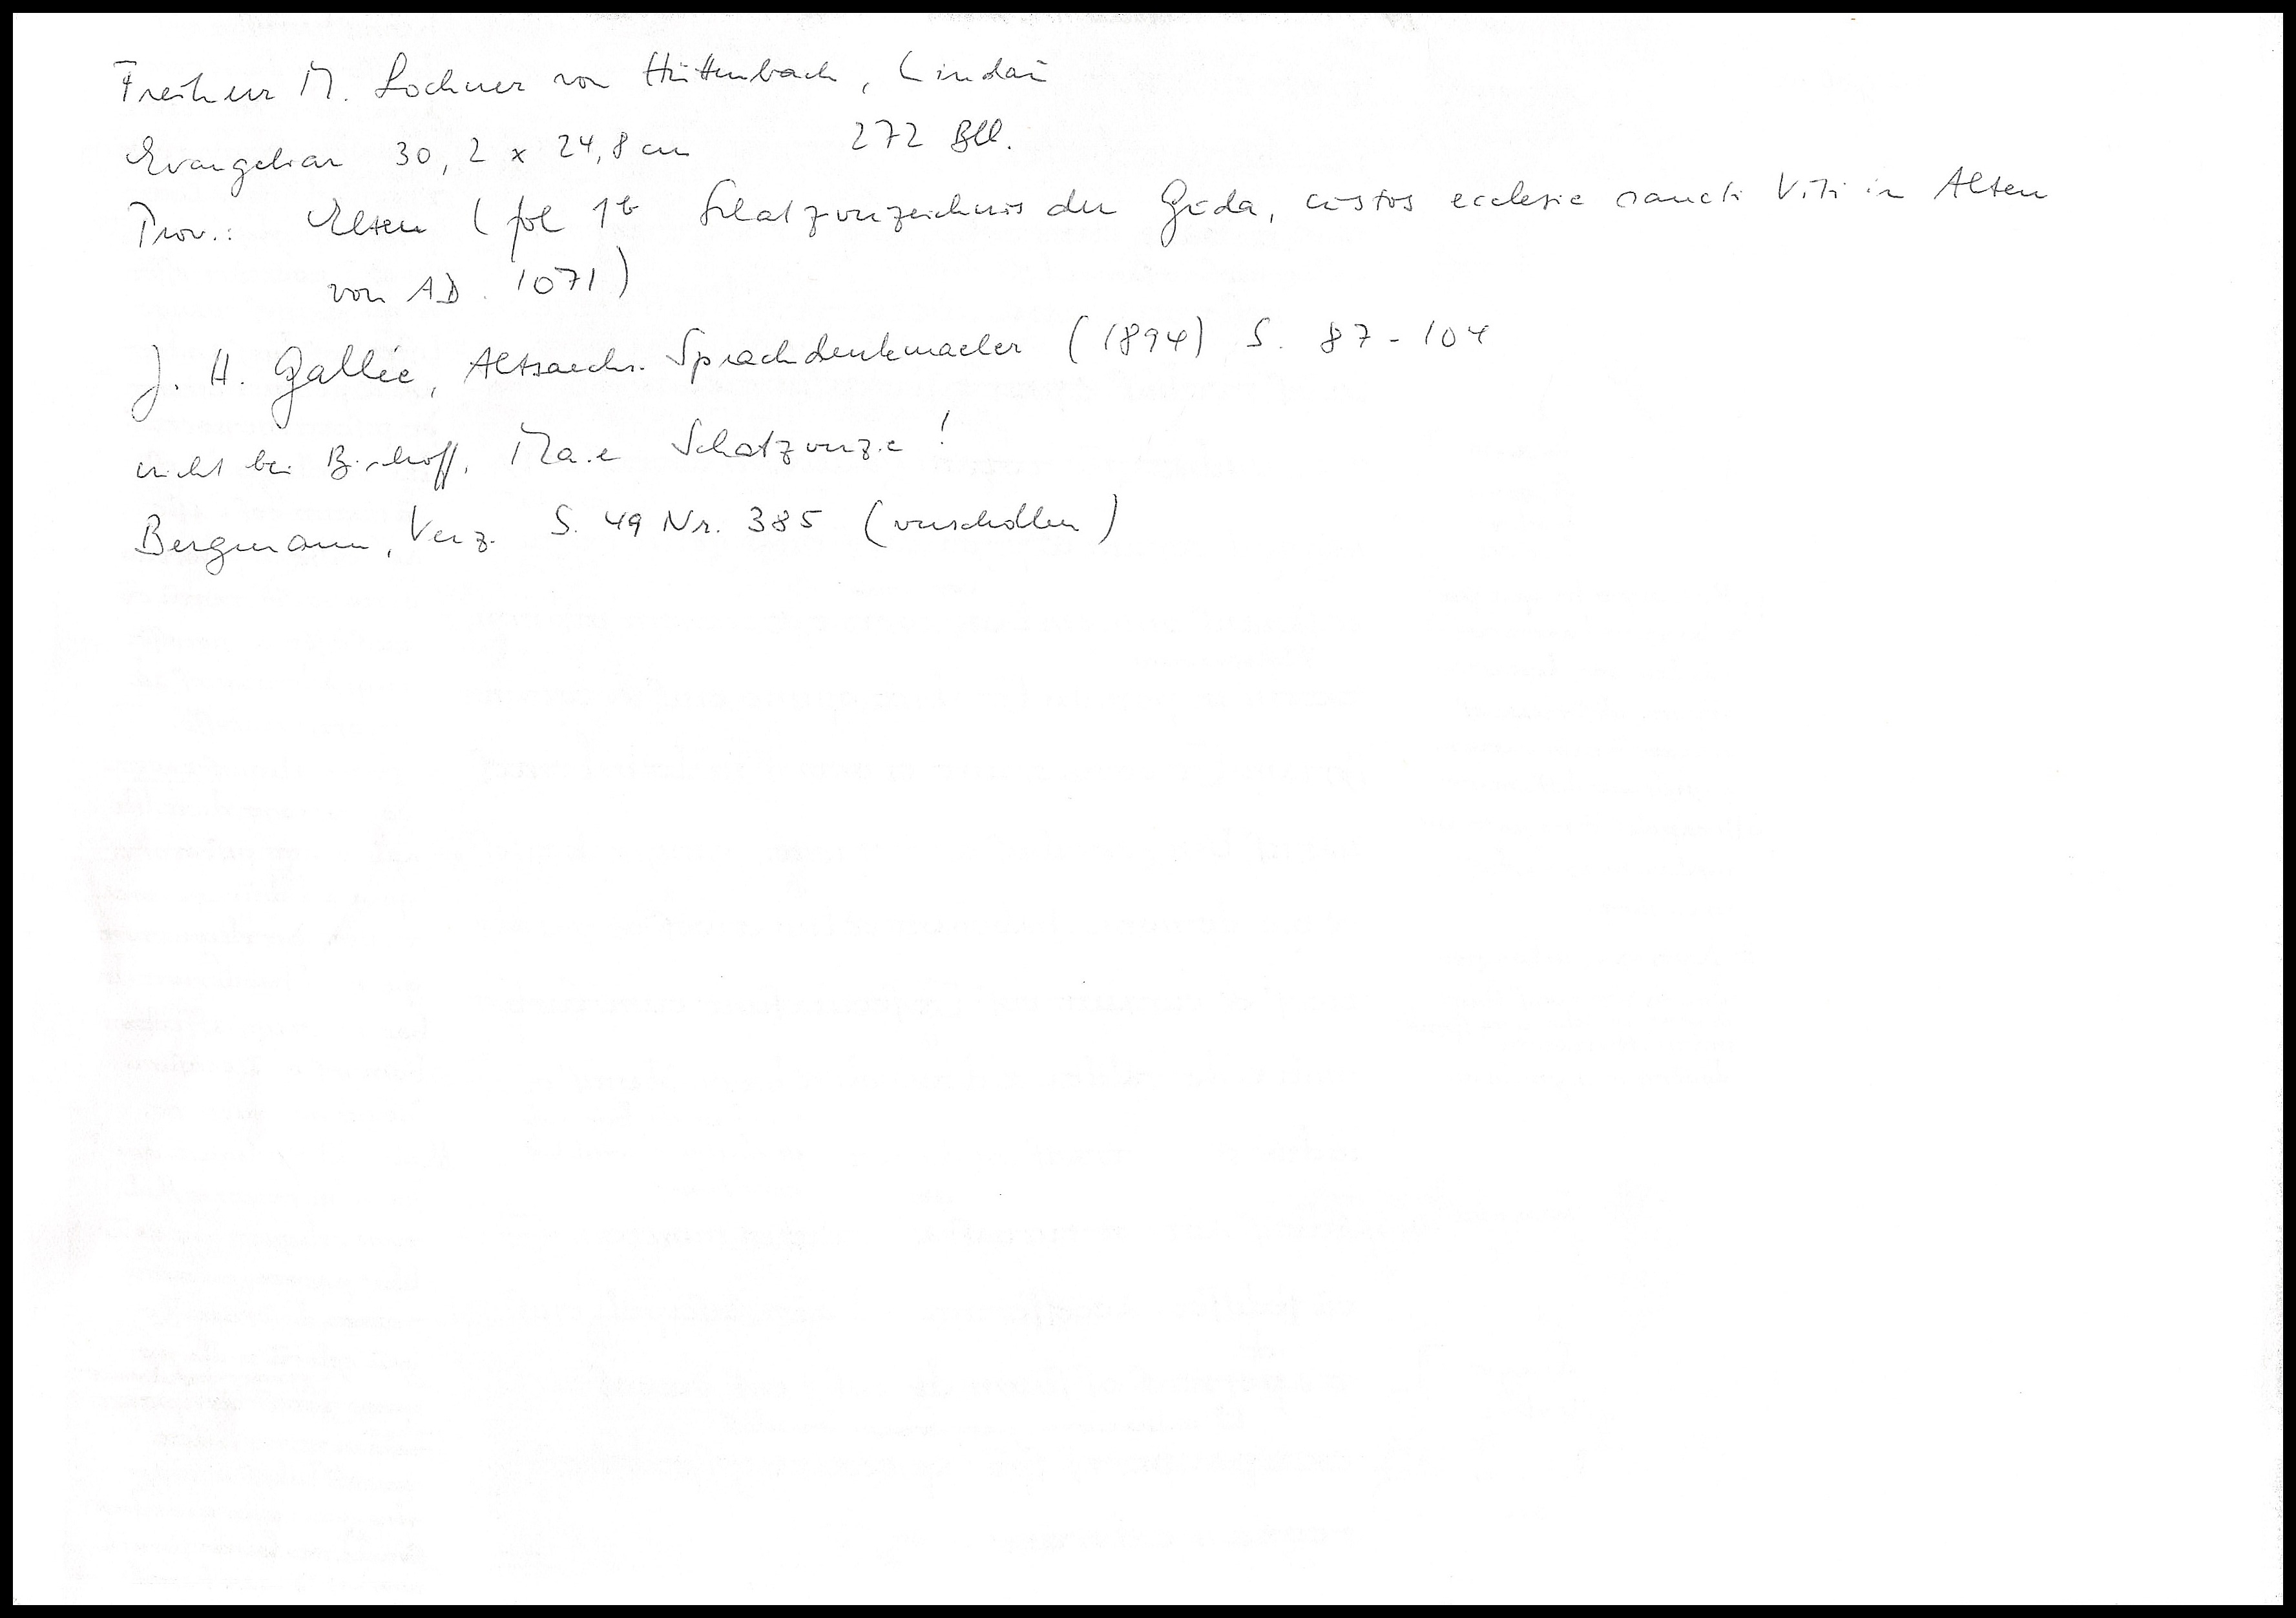 Freiherr M. Lochner von Hüttenbach, Lindau
Evangeliar 30,2 x 24,8 cm 272 Bll.
Prov.: Elten (fol 1b Schatzverzeichnis der Guda, custos ecclesie sancti Viti in Alten
von AD. 1071)
J. H. Gallée, Altsaechs. Sprachdenkmaeler (1894) S. 87-104
nicht bei Bischoff, Ma.e Schatzverz.e!
Bergmann, Verz. S. 49 Nr. 385 (verschollen)